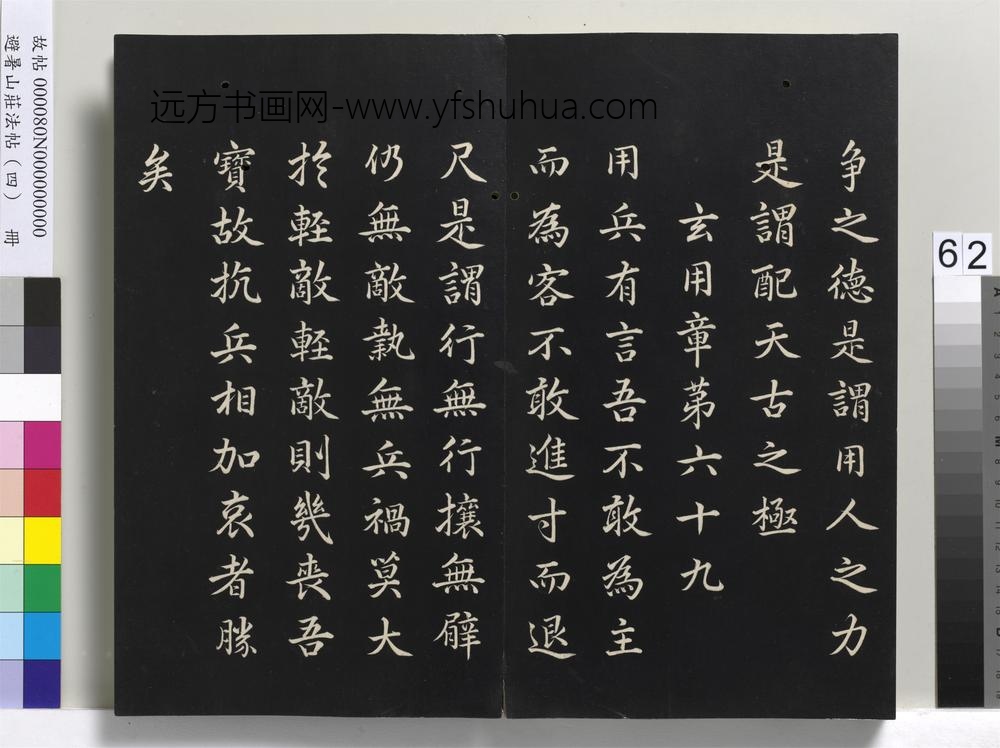 争之德是謂用人之力
是謂配天古之極
玄用章第六十九
用兵有言吾不敢為主
而為客不敢進寸而退
尺是謂行無行攘無臂
仍無敵執無兵禍莫大
於輕敵輕敵則幾喪吾
寶故抗兵相加哀者勝
矣
远方书画网-www.yfshuhua.com
故帖 000080N000000000
避暑山莊法帖(四) 冊
62